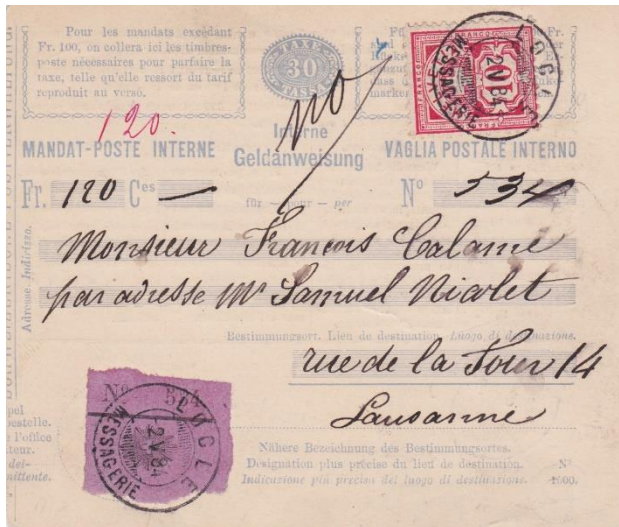 Pour les mandats excédant
Fr. 100, on collera ici les timbres-
poste nécessaires pour parfaire la
taxe, telle qu'elle ressort du tarif
reproduit au verso.
TAXE
30
TASSA
FRANCO
10
LOCLE
2 V 84
MESSAGERIE
120.
Interne
MANDAT-POSTE INTERNE
Geldanweisung
VAGLIA POSTALE INTERNO
Fr. 120 Ces —
für — pour — per
No 534
Monsieur François Calame
par adresse Mr Samuel Nicolet
Adresse. Indirizzo.
Bestimmungsort. Lieu de destination. Luogo di destinazione.
rue de la Tour 14
Lausanne
No
LOCLE
2 V 84
MESSAGERIE
Nähere Bezeichnung des Bestimmungsortes.
Désignation plus précise du lieu de destination.
Indicazione più precisa del luogo di destinazione.
No
1500.